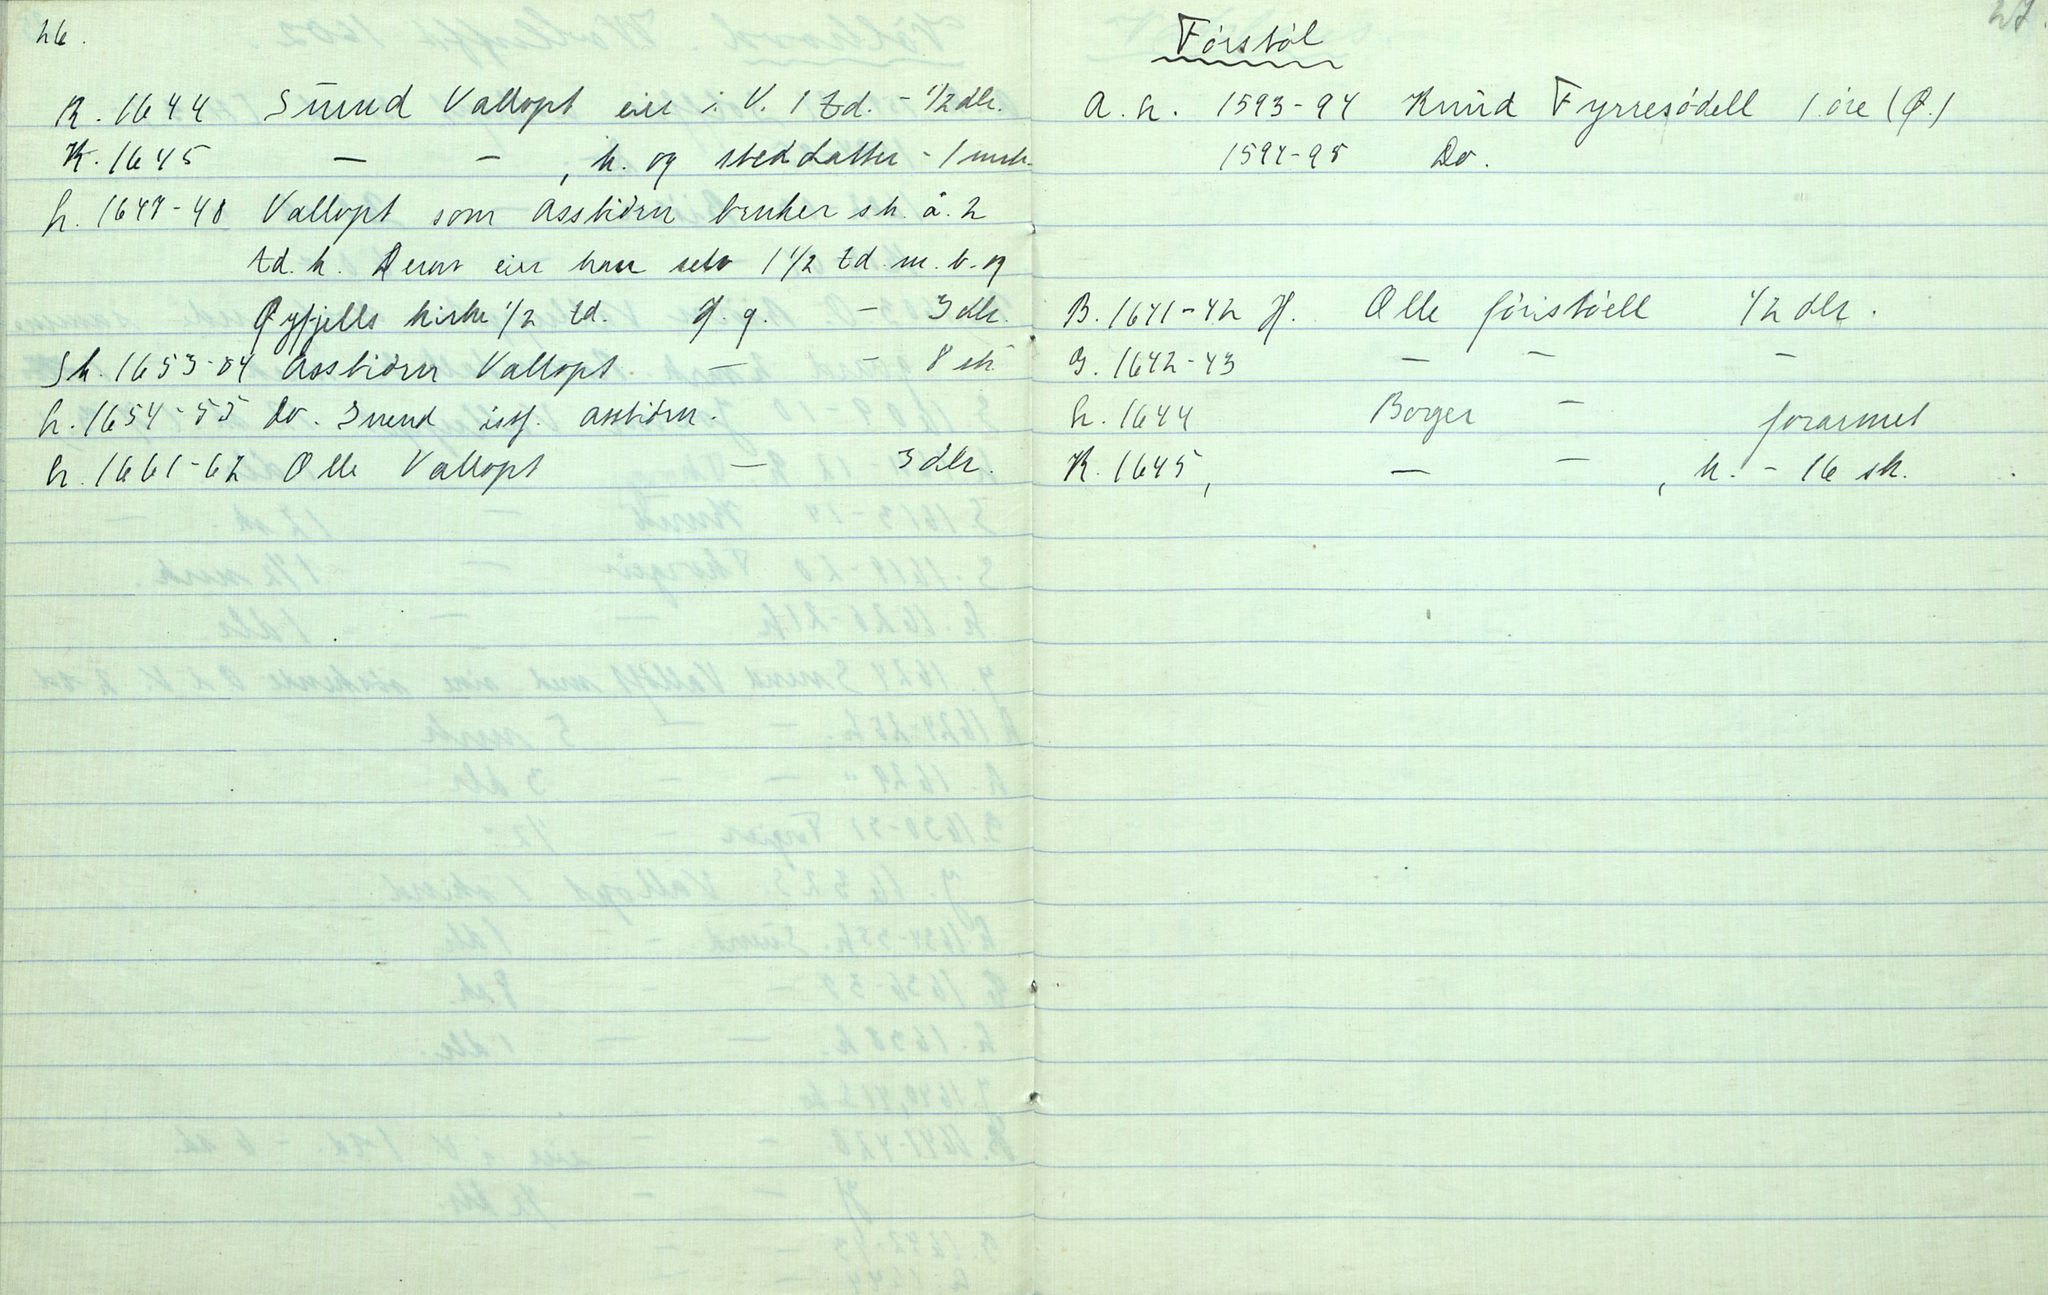 26.
K. 1644 Suund Vallopt eier i V. 1 td. - 1/2 dlr.
K. 1645 — — , k. og steddatter - 1 mrk.
h. 1647-48 Vallopt som Assbiörn bruker sk. á. 2
td. k. Derav eier han selv 1 1/2 td. m. b. og
Øyfjells kirke 1/2 td. H. g. — 3 dlr.
Sk. 1653-54 Assbiörn Vallopt — — 8 sk
h. 1654-55 Do. Suend istf. Assbiörn.
h. 1661-62 Olle Vallopt — 3 dlr.
27.
Förstöl
A. h. 1593-94 Knud Fyrresödell 1 öre (Ø.)
1594-95 Do.
B. 1641-42 H. Olle föristöell 1/2 dlr.
G. 1642-43 — — —
h. 1644 Borger — forarmet
K. 1645, — — , k. - 16 sk.